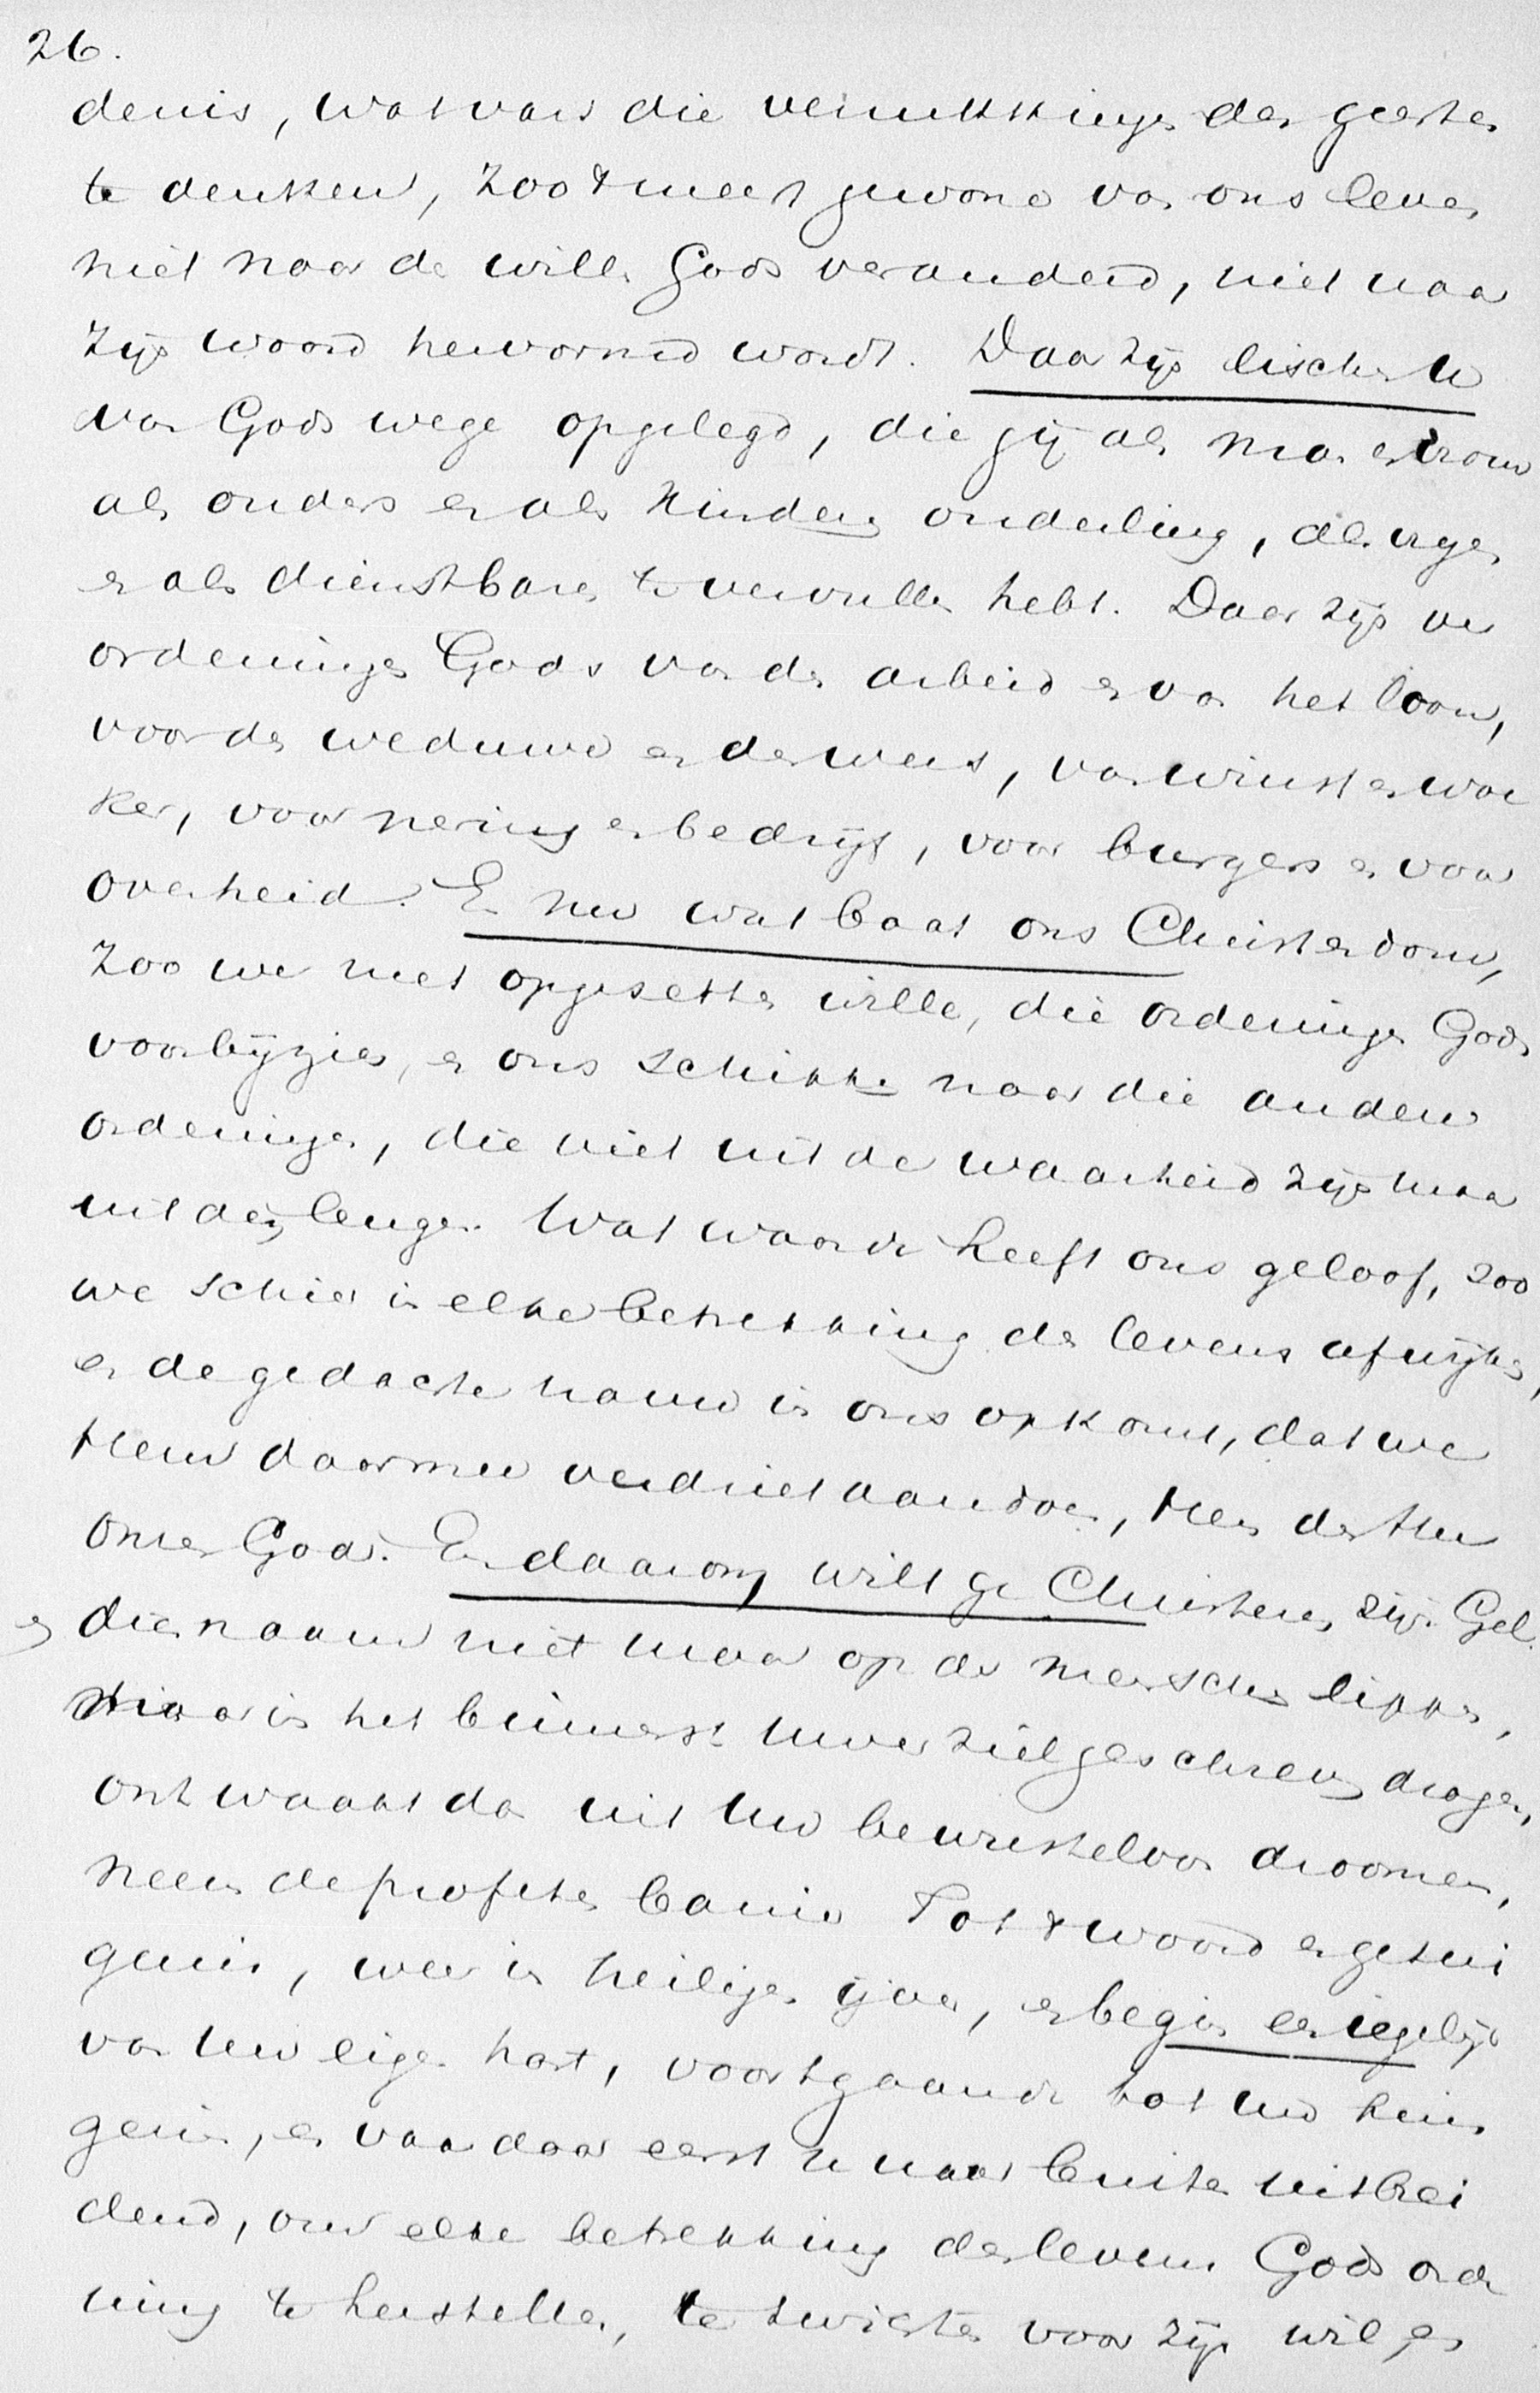 26.
denis, wat van die verrukkingen der geesten
te denken, zoo 't meest gewone van ons leven
niet naar de wille Gods veranderd, niet naar
zijn woord hervormd wordt. Daar zijn eischen U
van Gods wege opgelegd, die gij als man en vrouw
als ouders en als kinderen onderling, als vrijen
en als dienstbaren te vervullen hebt. Daar zijn ver
ordeningen Gods van den arbeid en van het loon,
voor de weduwe en de wees, van winst en woe
ker, voor nering en bedrijf, voor burgers en voor
overheid. En nu wat baat ons Christendom,
zoo we met opgezetten wille, die ordeningen Gods
voorbijzien, en ons schikken naar die andere
ordeningen, die niet uit de waarheid zijn maar
uit den leugen. Wat waarde heeft ons geloof, zoo
we schier in elke betrekking des levens afwijken,
en de gedachte nauw in ons opkomt, dat we
Hem daarmee verdriet aandoen, Hem den Heer
onzen God. En daarom wilt ge Christenen zijn Gel.
en dien naam niet maar op de menschen lippen,
maar in het binnenst uwer ziel geschreven dragen,
ontwaakt dan uit uw bewusteloos droomen,
neem de profeten banier Tot 't woord en getui
genis, weer in heiligen ijver, en begin een iegelijk
van uw eigen hart, voortgaande tot uw huis
gezin, en van daar eerst u naar buiten uitbrei
dend, om elke betrekking des levens Gods orde
ning te herstellen, te zwichten voor zijn wil en